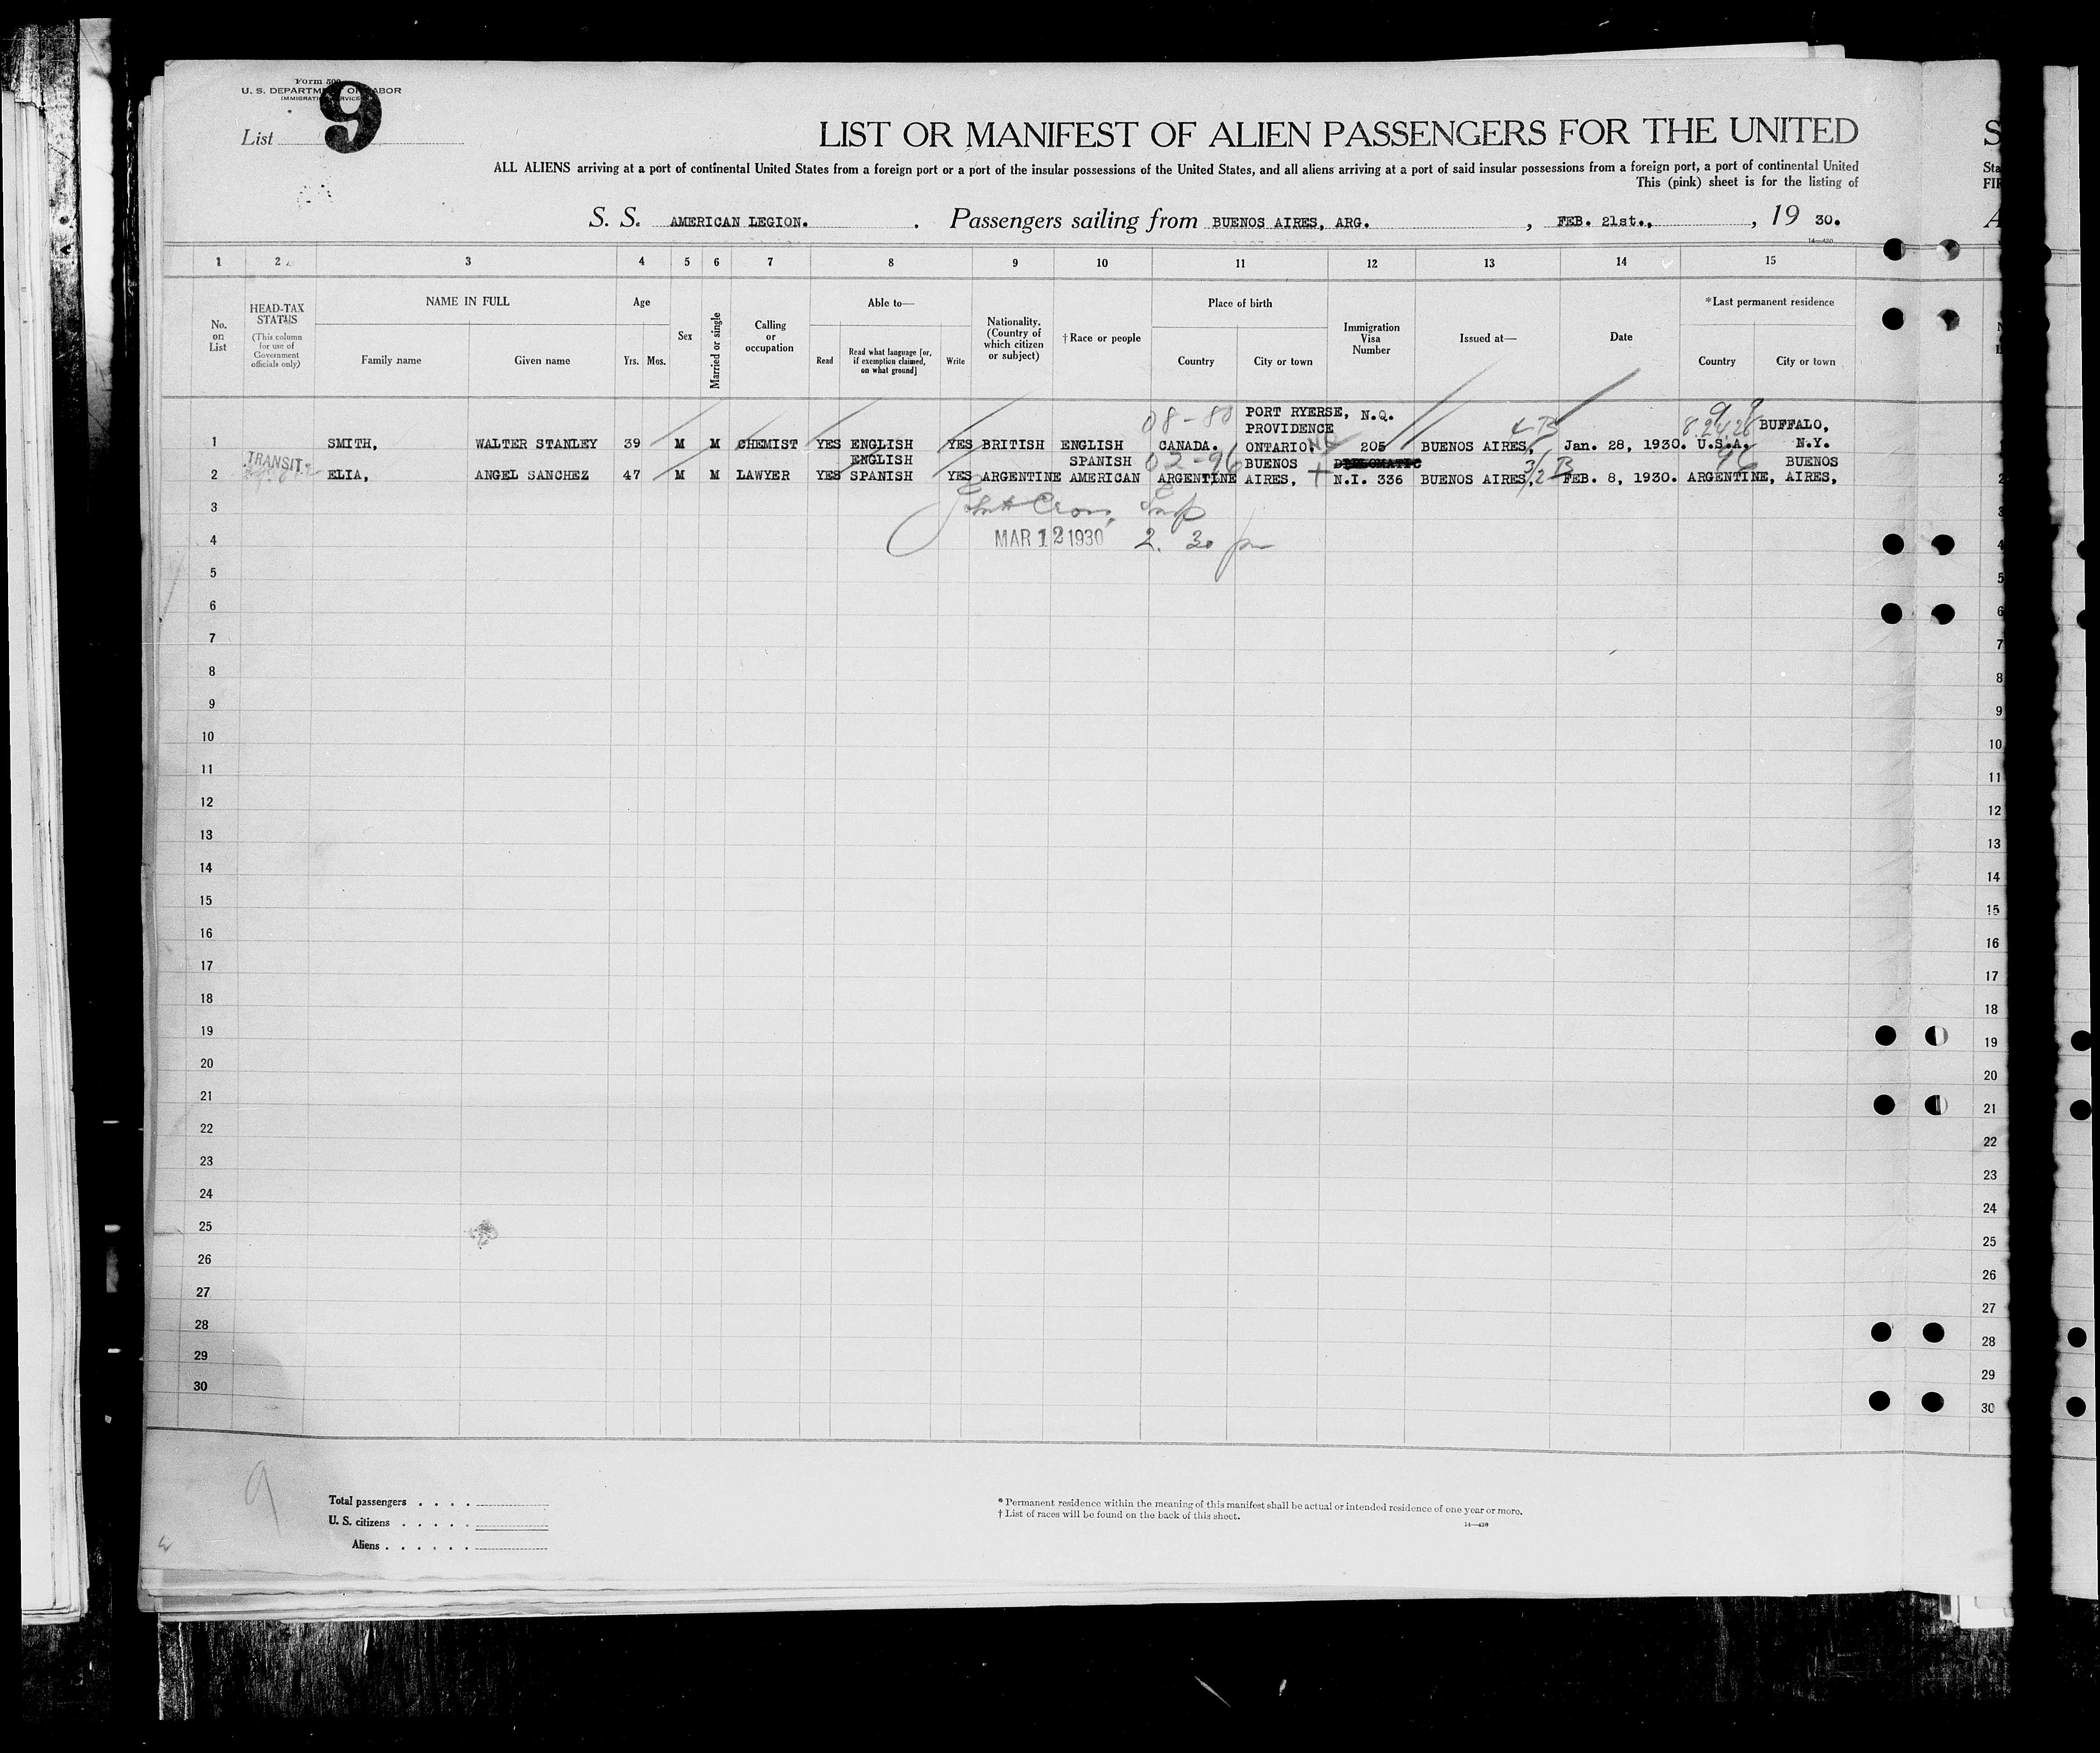 Form 500
U. S. DEPARTMENT OF LABOR
IMMIGRATION SERVICE
List 9
LIST OR MANIFEST OF ALIEN PASSENGERS FOR THE UNITED
ALL ALIENS arriving at a port of continental United States from a foreign port or a port of the insular possessions of the United States, and all aliens arriving at a port of said insular possessions from a foreign port, a port of continental United
This (pink) sheet is for the listing of
S
Sta
FIR
S. S. AMERICAN LEGION. . Passengers sailing from BUENOS AIRES, ARG. , FEB. 21st., , 19 30.
14—430
1 2 3 4 5 6 7 8 9 10 11 12 13 14 15
No. on List
HEAD-TAX STATUS
(This column for use of Government officials only)
NAME IN FULL
Family name Given name
Age
Yrs. Mos.
Sex
Married or single
Calling or occupation
Able to—
Read
Read what language [or, if exemption claimed, on what ground]
Write
Nationality. (Country of which citizen or subject)
† Race or people
Place of birth
Country City or town
Immigration Visa Number
Issued at—
Date
*Last permanent residence
Country City or town
08-80 PORT RYERSE, N.Q. 4-B
PROVIDENCE BUFFALO,
1 SMITH, WALTER STANLEY 39 M M CHEMIST YES ENGLISH YES BRITISH ENGLISH CANADA. ONTARIO. NQ 205 BUENOS AIRES, Jan. 28, 1930. U.S.A. N.Y.
TRANSIT ENGLISH SPANISH 02-96 BUENOS DIPLOMATIC 3/2 B BUENOS
2 ELIA, ANGEL SANCHEZ 47 M M LAWYER YES SPANISH YES ARGENTINE AMERICAN ARGENTINE AIRES, N.I. 336 BUENOS AIRES, FEB. 8, 1930. ARGENTINE, AIRES,
3 John Cron, Insp
4 MAR 12 1930 2. 30 pm
5
6
7
8
9
10
11
12
13
14
15
16
17
18
19
20
21
22
23
24
25
26
27
28
29
30
1
2
3
4
5
6
7
8
9
10
11
12
13
14
15
16
17
18
19
20
21
22
23
24
25
26
27
28
29
30
9
Total passengers . . . .
U. S. citizens . . . . .
Aliens . . . . . .
* Permanent residence within the meaning of this manifest shall be actual or intended residence of one year or more.
† List of races will be found on the back of this sheet.
14—430